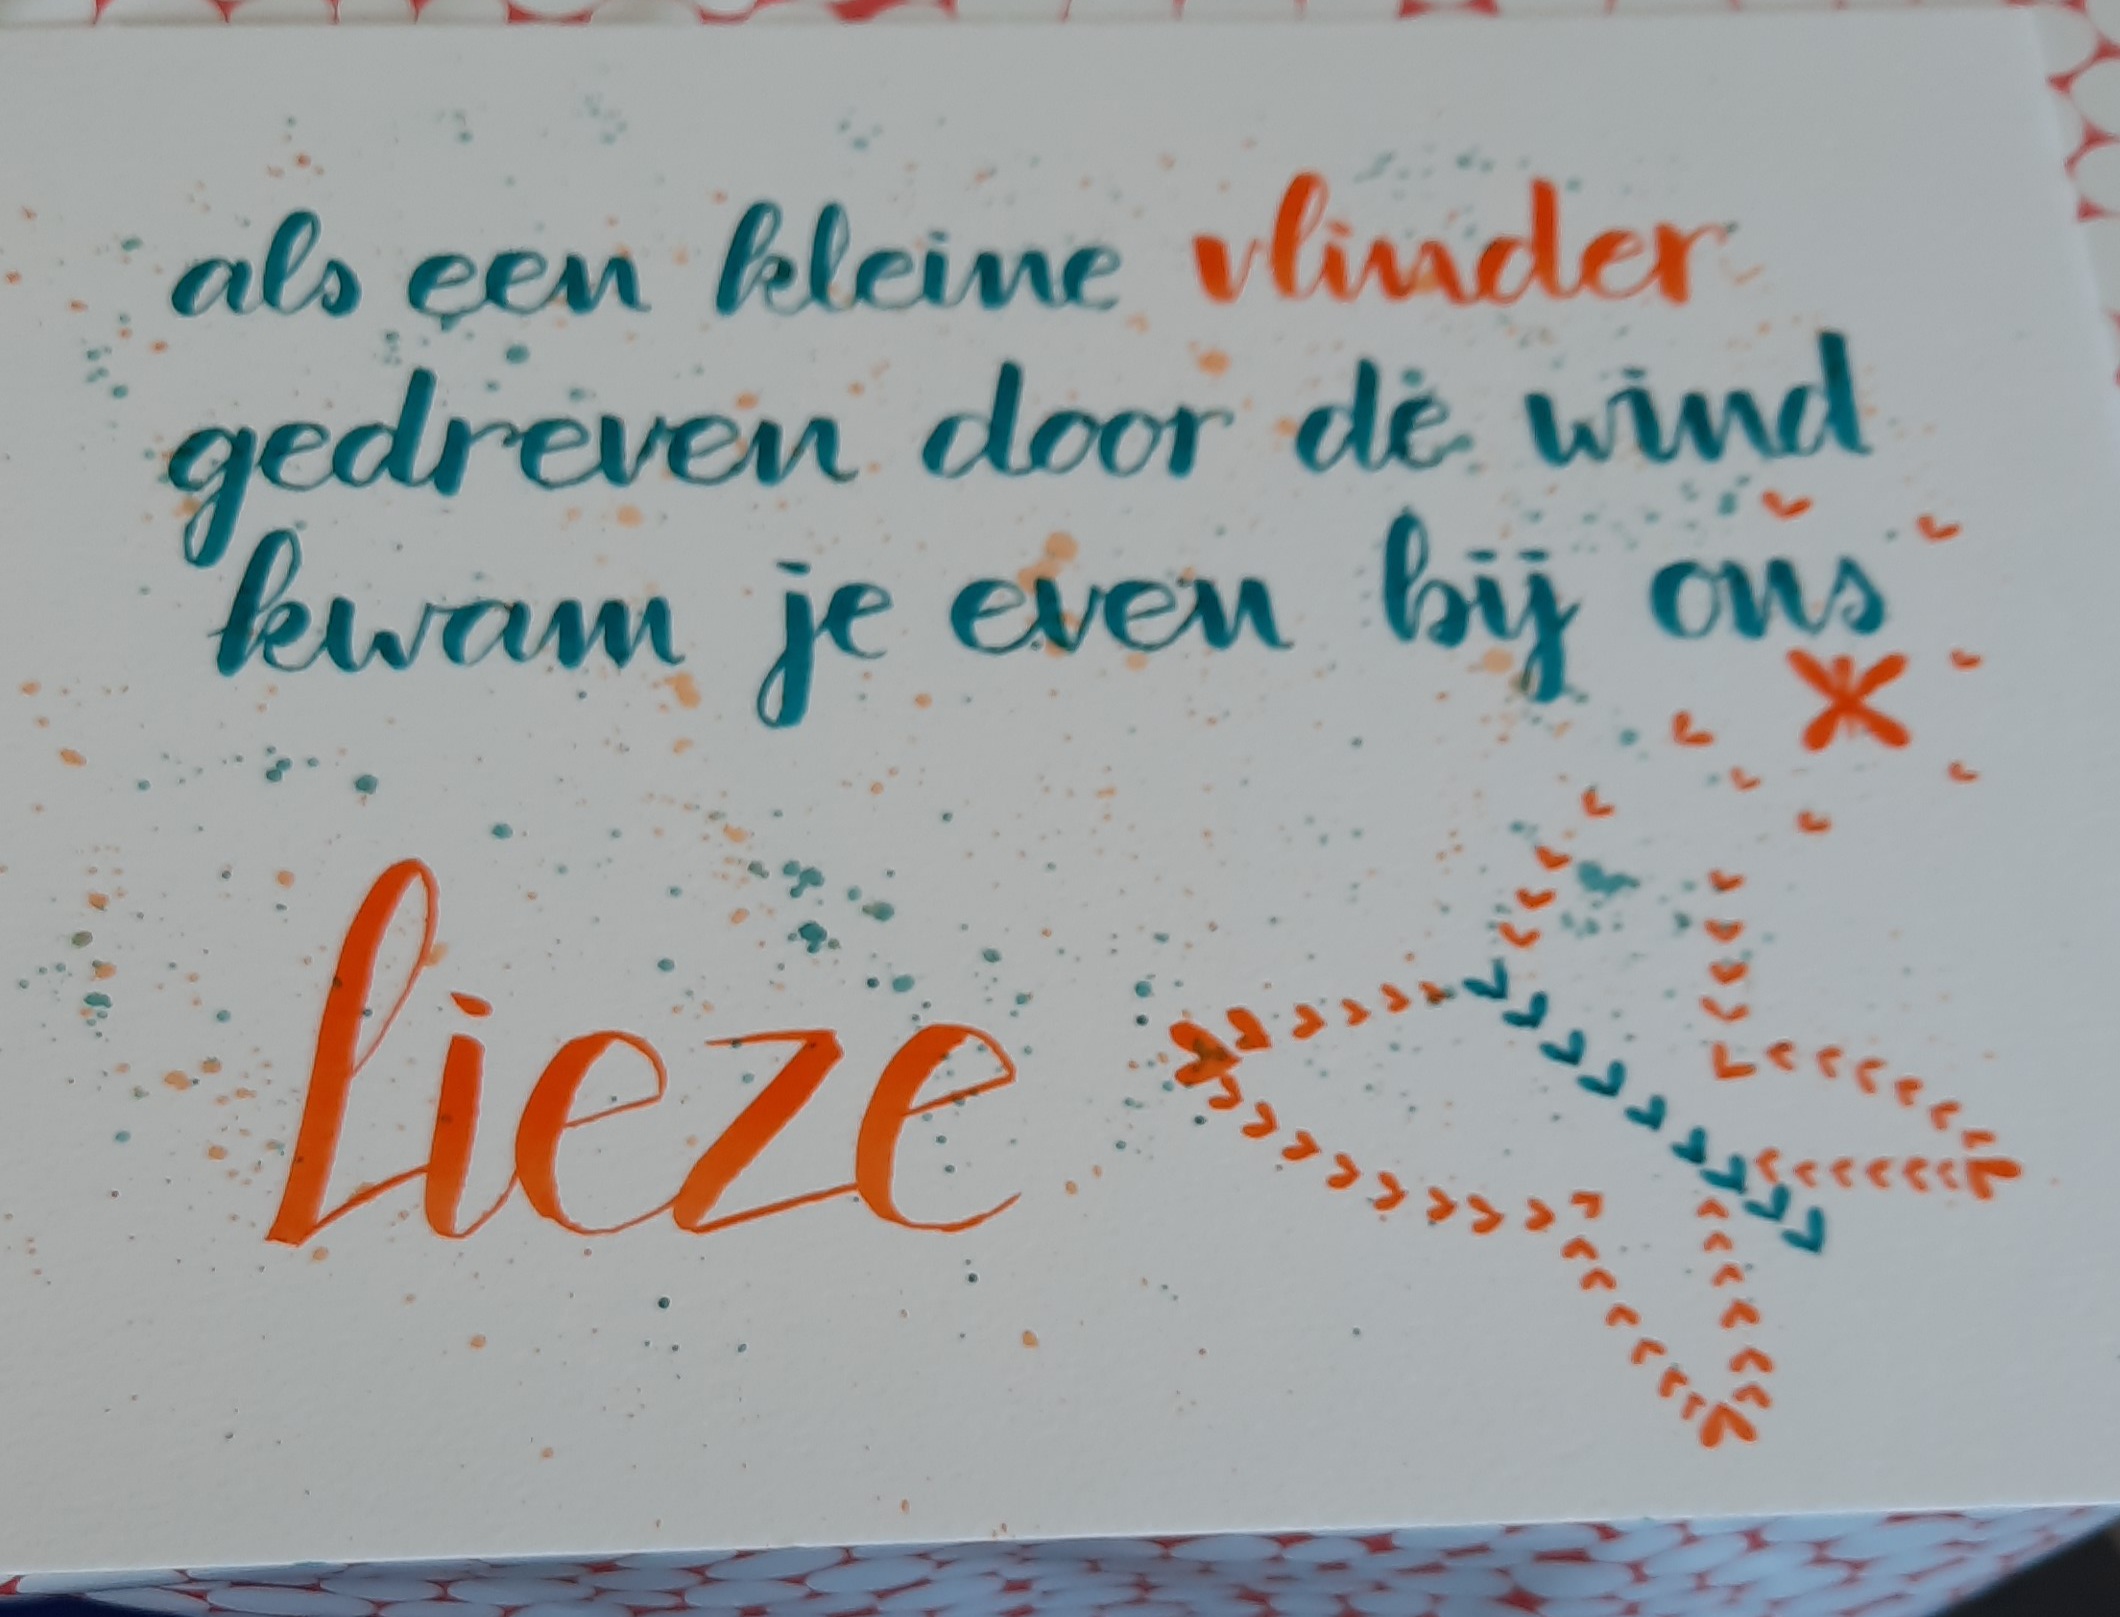 als een kleine vlinder
gedreven door de wind
kwam je even bij ons
Lieze